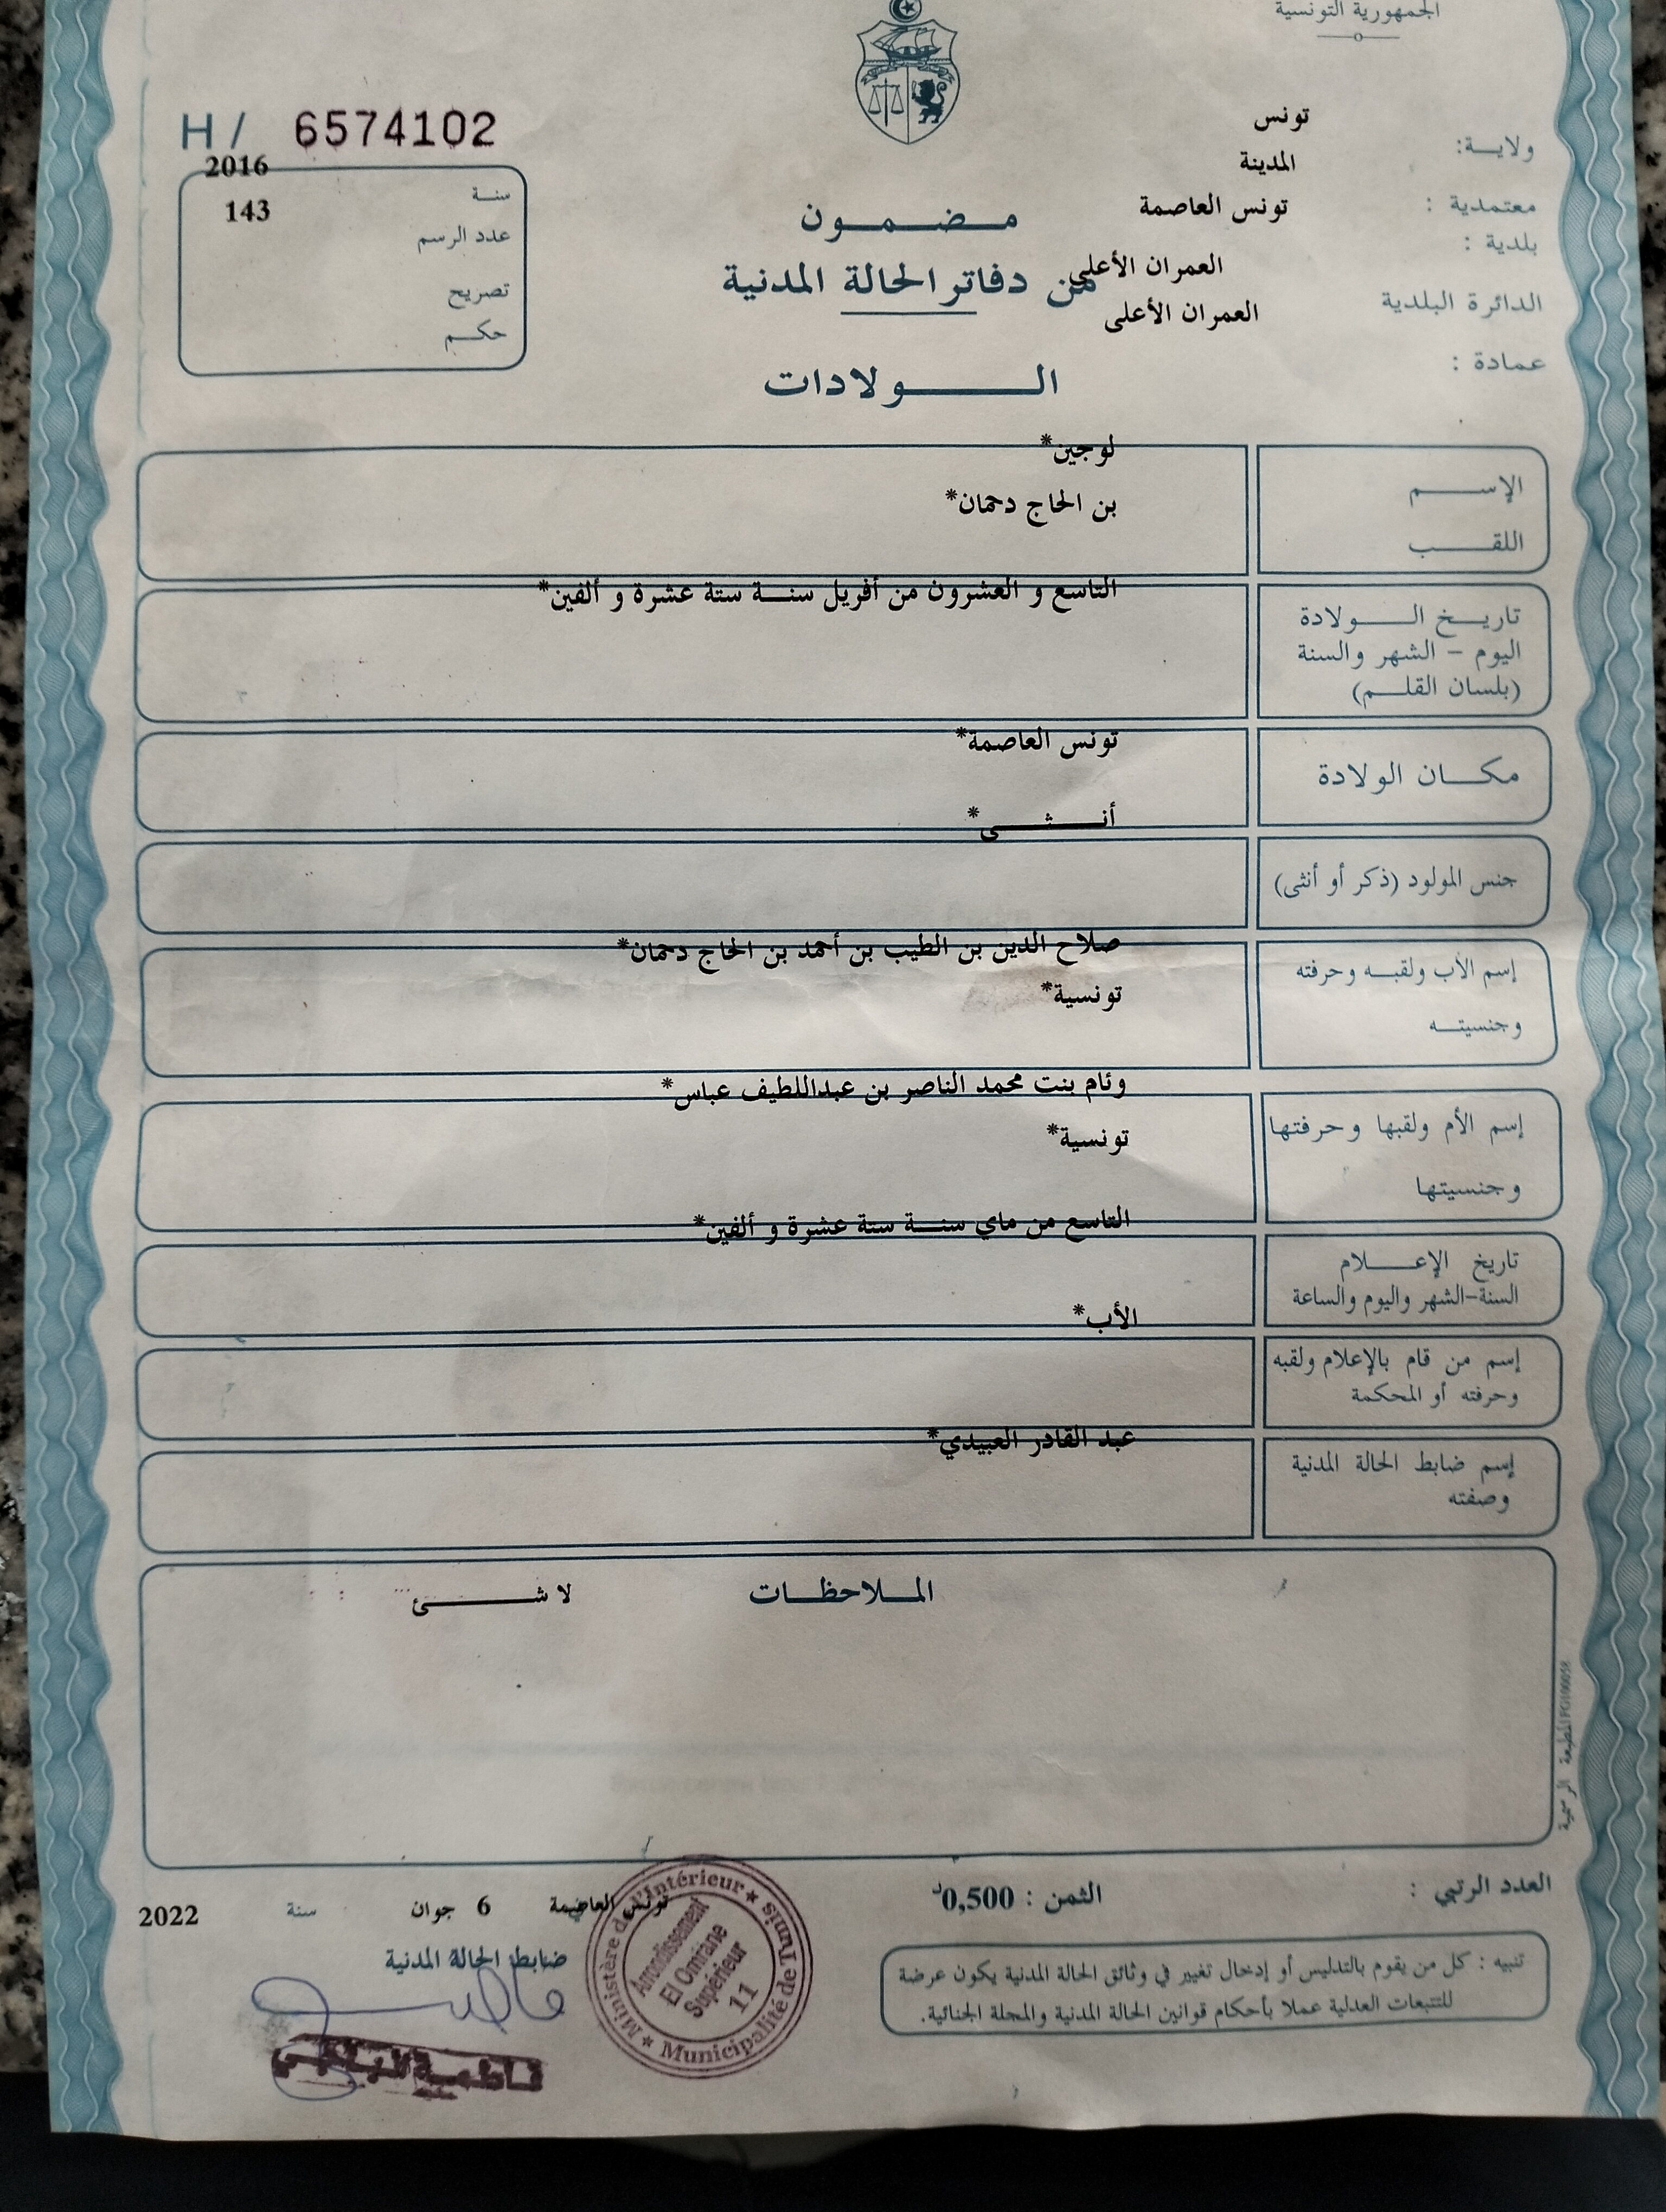 الجمهورية التونسية
H / 6574102
ولاية: تونس
المدينة
معتمدية : تونس العاصمة
بلدية :
العمران الأعلى
الدائرة البلدية العمران الأعلى
عمادة :
2016
سنة
143
عدد الرسم
تصريح
حكم
مضمون
من دفاتر الحالة المدنية
الولادات
الإسم لوجين*
اللقب بن الحاج دحمان*
التاسع و العشرون من أفريل سنة ستة عشرة و ألفين*
تاريخ الولادة
اليوم - الشهر والسنة
(بلسان القلم)
تونس العاصمة*
مكان الولادة
أنثى*
جنس المولود (ذكر أو أنثى)
صلاح الدين بن الطيب بن أحمد بن الحاج دحمان*
إسم الأب ولقبه وحرفته
تونسية*
وجنسيته
وئام بنت محمد الناصر بن عبداللطيف عباس*
إسم الأم ولقبها وحرفتها
تونسية*
وجنسيتها
التاسع من ماي سنة ستة عشرة و ألفين*
تاريخ الإعلام
السنة-الشهر واليوم والساعة
الأب*
إسم من قام بالإعلام ولقبه
وحرفته أو المحكمة
عبد القادر العبيدي*
إسم ضابط الحالة المدنية
وصفته
الملاحظات لا شئ
المطبعة الرسمية FG100058
العدد الرتبي :
الثمن : 0,500د
تونس العاصمة 6 جوان سنة 2022
ضابط الحالة المدنية
Ministère de l'Intérieur
Municipalité de Tunis
Arrondissement
El Omrane
Supérieur
11
تنبيه : كل من يقوم بالتدليس أو إدخال تغيير في وثائق الحالة المدنية يكون عرضة
للتتبعات العدلية عملا بأحكام قوانين الحالة المدنية والمجلة الجنائية.